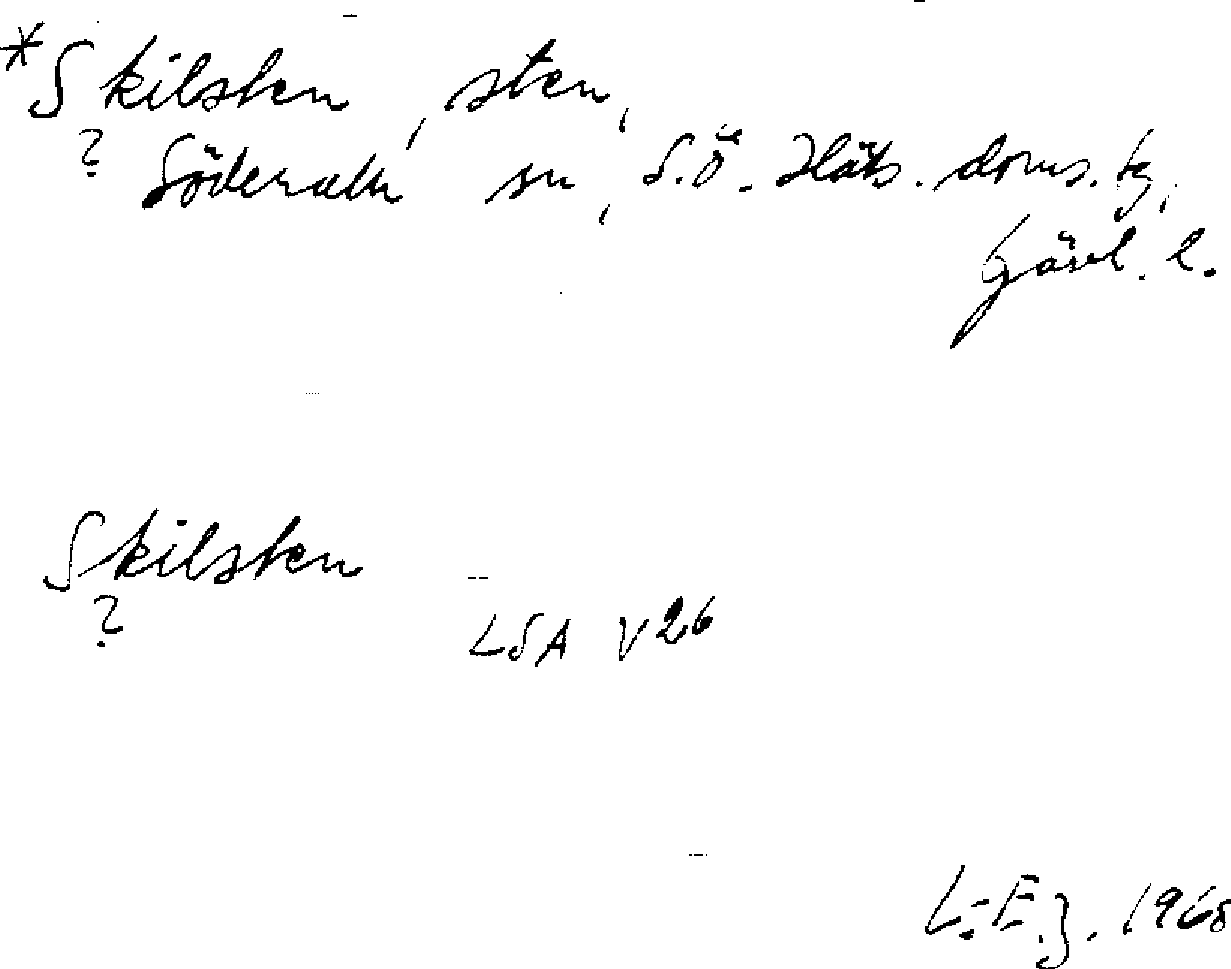 *Skilsten, sten,
? Söderala sn, S.Ö. Häls. doms. tg,
Gävl. l.
Skilsten
?
LSA V26
L.-E. J. 1968